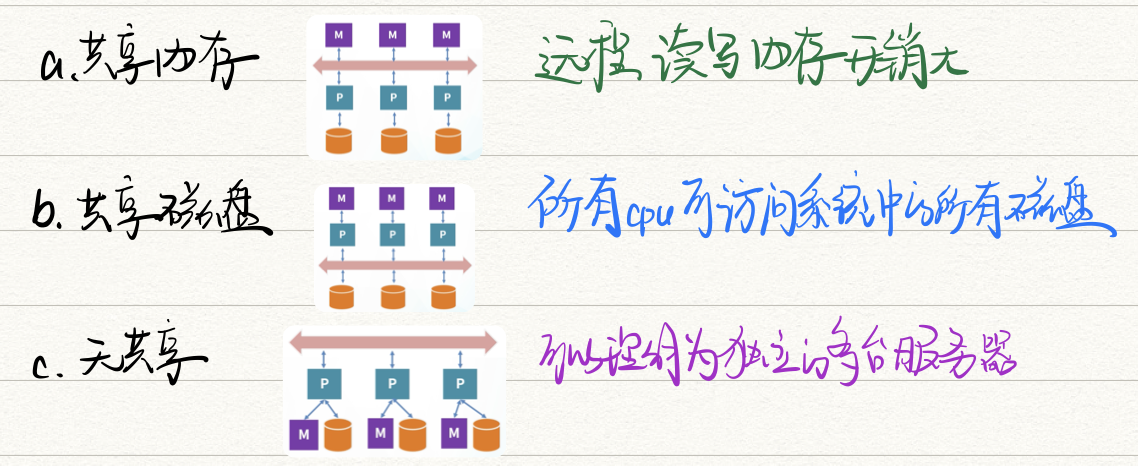 a.共享内存
M M M
P P P
远程读写内存开销大
b.共享磁盘
M M M
P P P
所有cpu可访问系统中的所有磁盘
c.无共享
P P P
M M M
可以理解为独立的多台服务器